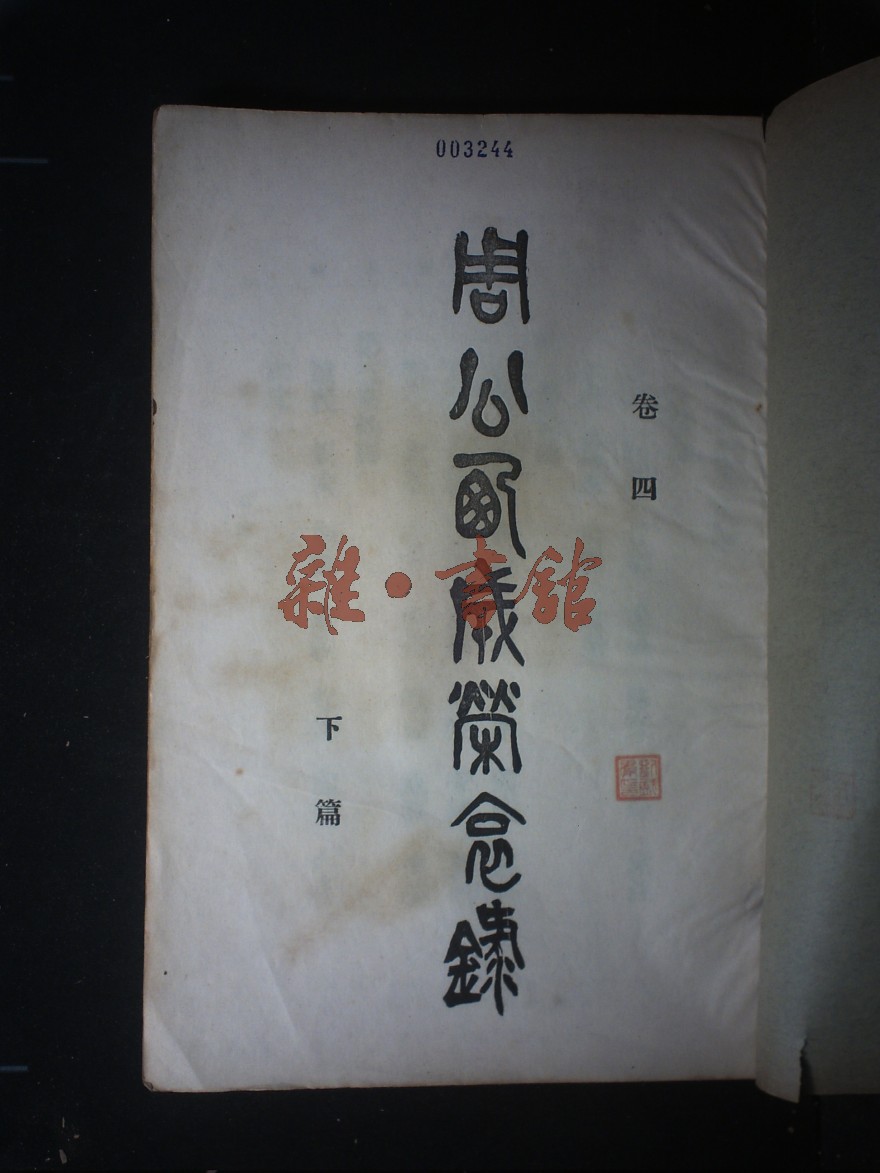 003244
卷四
周公歲榮念錄
下篇
雜·書館